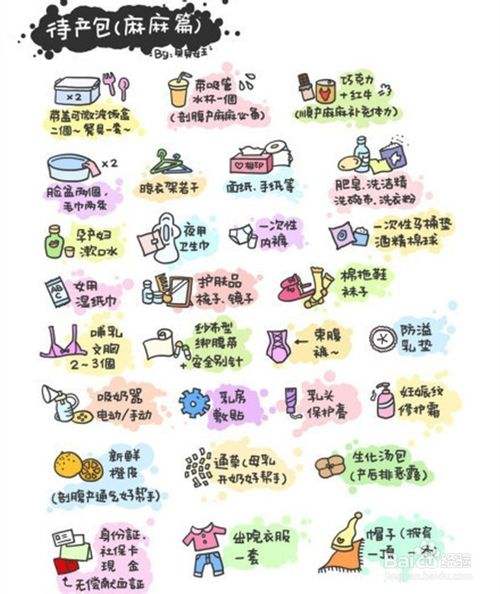 待产包(麻麻篇)
By:贝娃
×2
带盖可微波饭盒
二個~餐具一套~
带吸管
水杯一個
(剖腹产麻麻必备)
巧克力
+红牛
(顺产麻麻补充体力)
×2
脸盆两個、
毛巾两条
晾衣架若干
面纸、手纸等
肥皂、洗洁精
洗碗布、洗衣粉
孕产妇
漱口水
夜用
卫生巾
一次性
内裤
一次性马桶垫
酒精棉球
女用
湿纸巾
护肤品
梳子、镜子
棉拖鞋
袜子
哺乳
文胸
2~3個
纱布型
绑腹带
+安全别针
束腹
裤~
防溢
乳垫
吸奶器
电动/手动
乳房
敷贴
乳头
保护膏
妊娠纹
修护霜
新鲜
橙皮
(剖腹产通气好帮手)
通草(母乳
开奶好帮手)
生化汤包
(产后排恶露)
身份証、
社保卡
现金
无偿献血証
出院衣服
一套
帽子(披肩
一顶
Baidu经验
jingyan.baidu.com